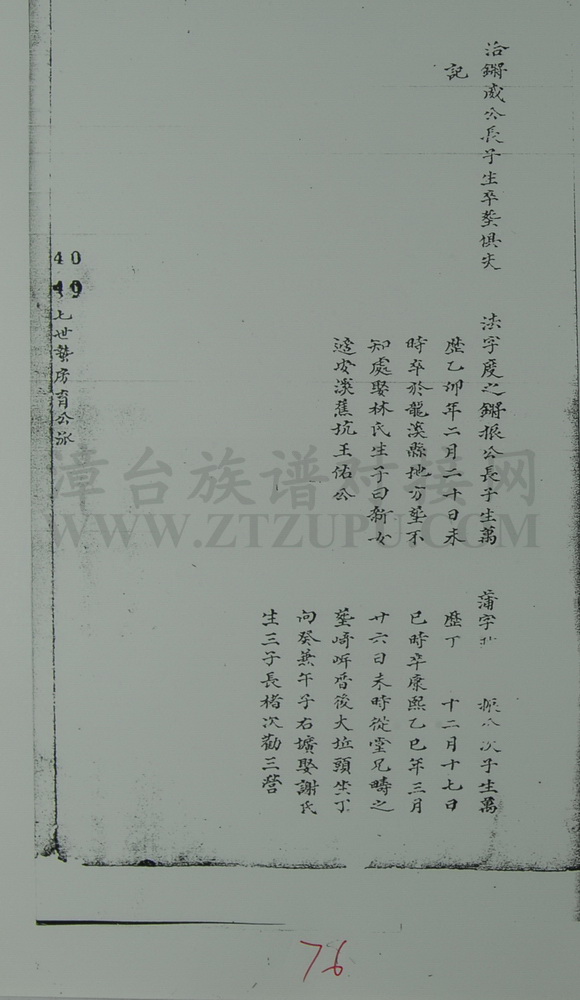 洽鏘威公長子生卒葬俱失
記
法字度之鏘振公長子生萬
歷乙卯年二月二十日未
時卒於龍溪縣地方塟不
知處娶林氏生子曰新女
適安溪蕉坑王佑公
蒲字 振公次子生萬
歷丁 十二月十七日
巳時卒康熙乙巳年三月
廿六日未時從堂兄疇之
塟崎 香後大坵頭坐丁
向癸兼午子右壙娶謝氏
生三子長楮次勸三營
40
七世龔房育公派
漳台族谱对接网
WWW.ZTZUPU.COM
76